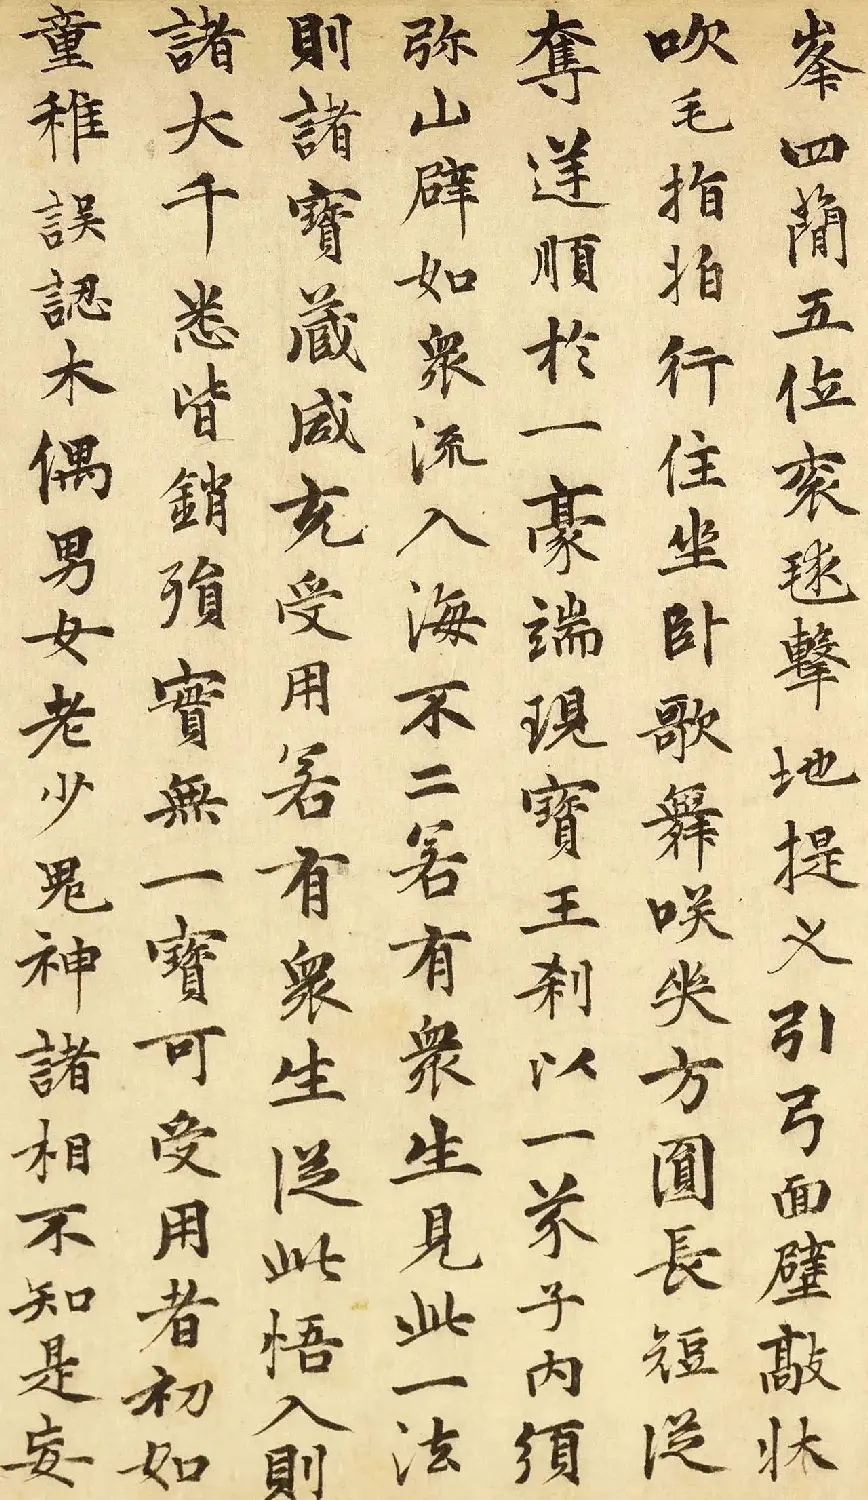 峯四蕳五位衮毬擊地提义引弓面壁敲牀
吹毛指拍行住坐卧歌舞咲哭方圓長短逆
奪逆順於一豪端現寶王刹以一芥子内須
弥山辟如衆流入海不二若有衆生見此一法
則諸寶蔵咸充受用若有衆生従此悟入則
諸大千悉皆銷殞實無一寶可受用者初如
童稚誤認木偶男女老少鬼神諸相不知是妄